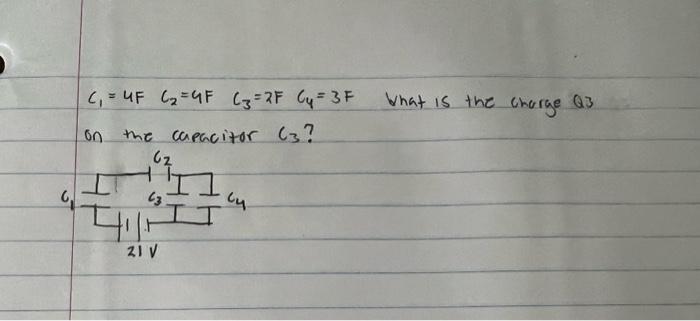 C₁ = 4F C₂ = 4F C₃ = 2F C₄ = 3F What is the charge Q3
on the capacitor C₃?
C₂
C₁ C₃ C₄
21 V